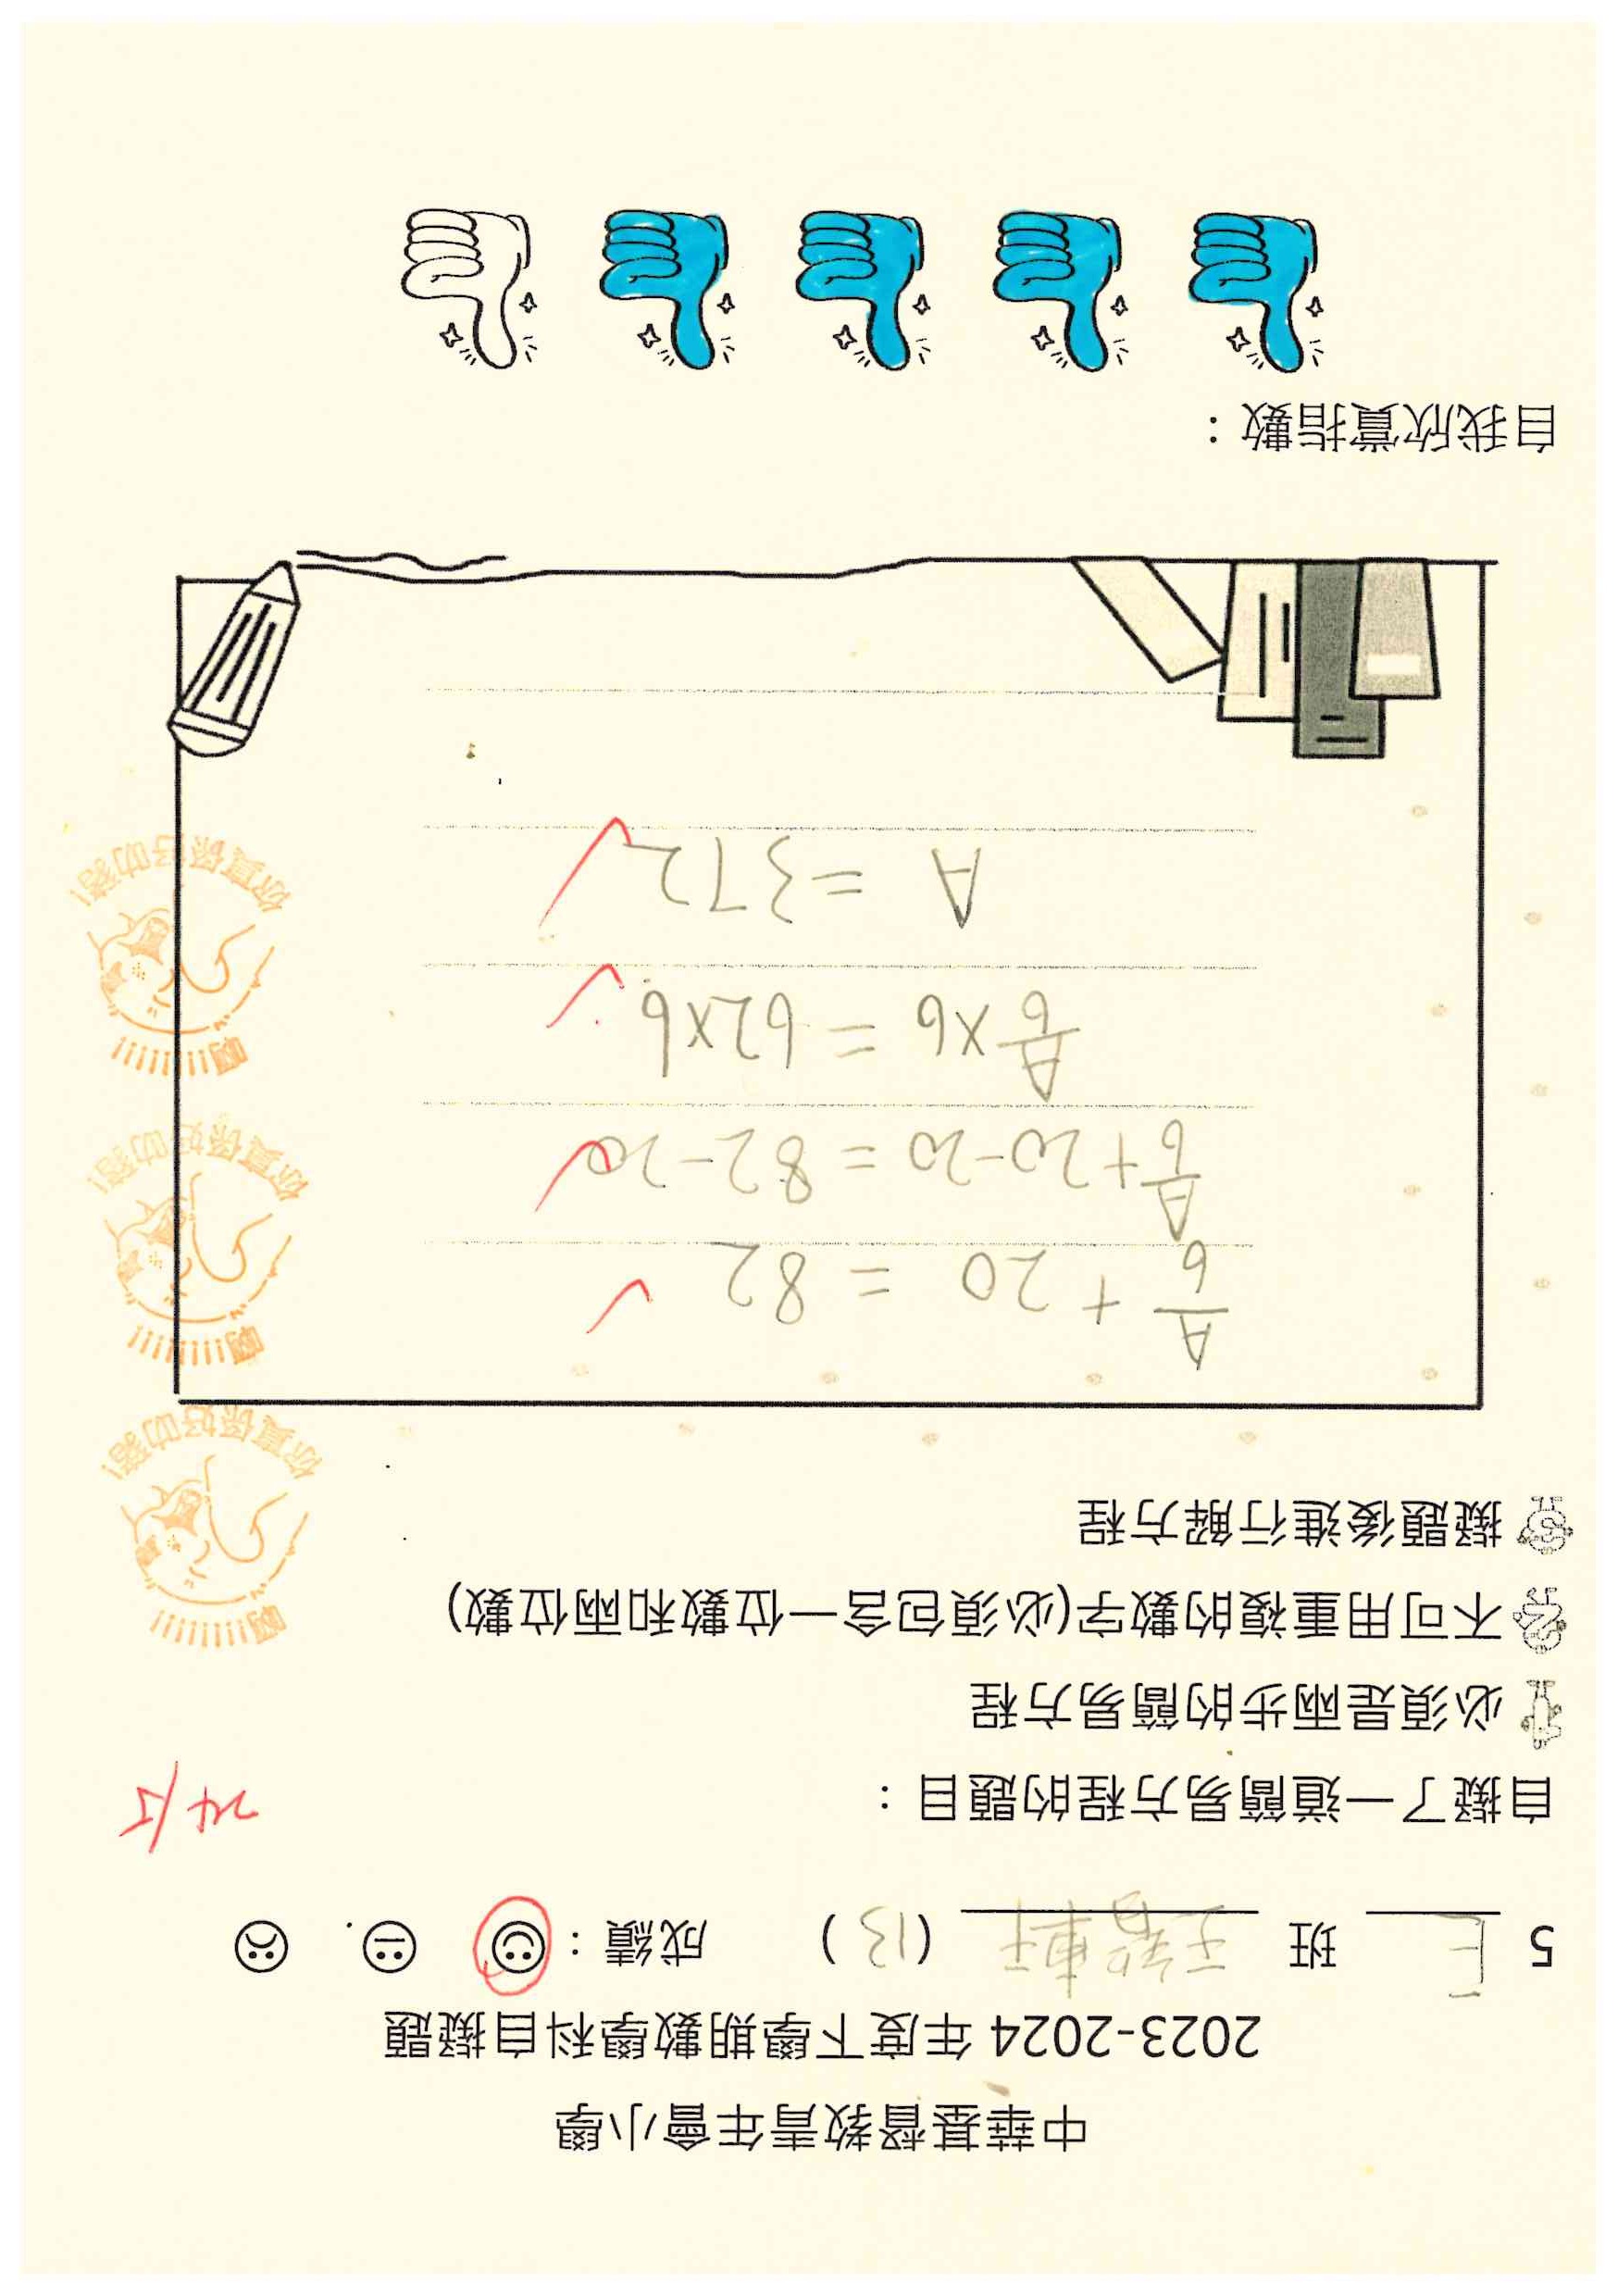 中華基督教青年會小學
2023-2024 年度下學期數學科自擬題
5 E 班 (13) 成績：
24/5
自擬了一道簡易方程的題目：
必須是兩步的簡易方程
不可用重複的數字(必須包含一位數和兩位數)
擬題後進行解方程
A/6 + 20 = 82
A/6 + 20 - 20 = 82 - 20
A/6 × 6 = 62 × 6
A = 372
自我欣賞指數：
你真係好叻豬!
你真係好叻豬!
你真係好叻豬!